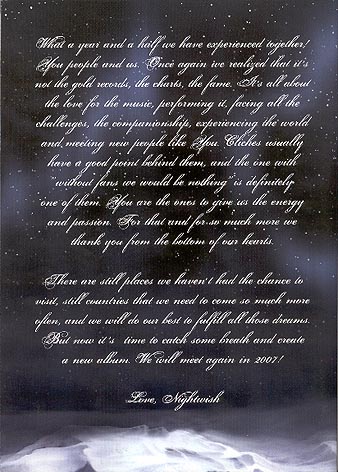 What a year and a half we have experienced together!
You people and us. Once again we realized that it's
not the gold records, the charts, the fame. It's all about
the love for the music, performing it, facing all the
challenges, the companionship, experiencing the world
and meeting new people like You. Cliches usually
have a good point behind them, and the one with
"without fans we would be nothing" is definitely
one of them. You are the ones to give us the energy
and passion. For that and for so much more we
thank you from the bottom of our hearts.
There are still places we haven't had the chance to
visit, still countries that we need to come so much more
often, and we will do our best to fulfill all those dreams.
But now it's time to catch some breath and create
a new album. We will meet again in 2007!
Love, Nightwish